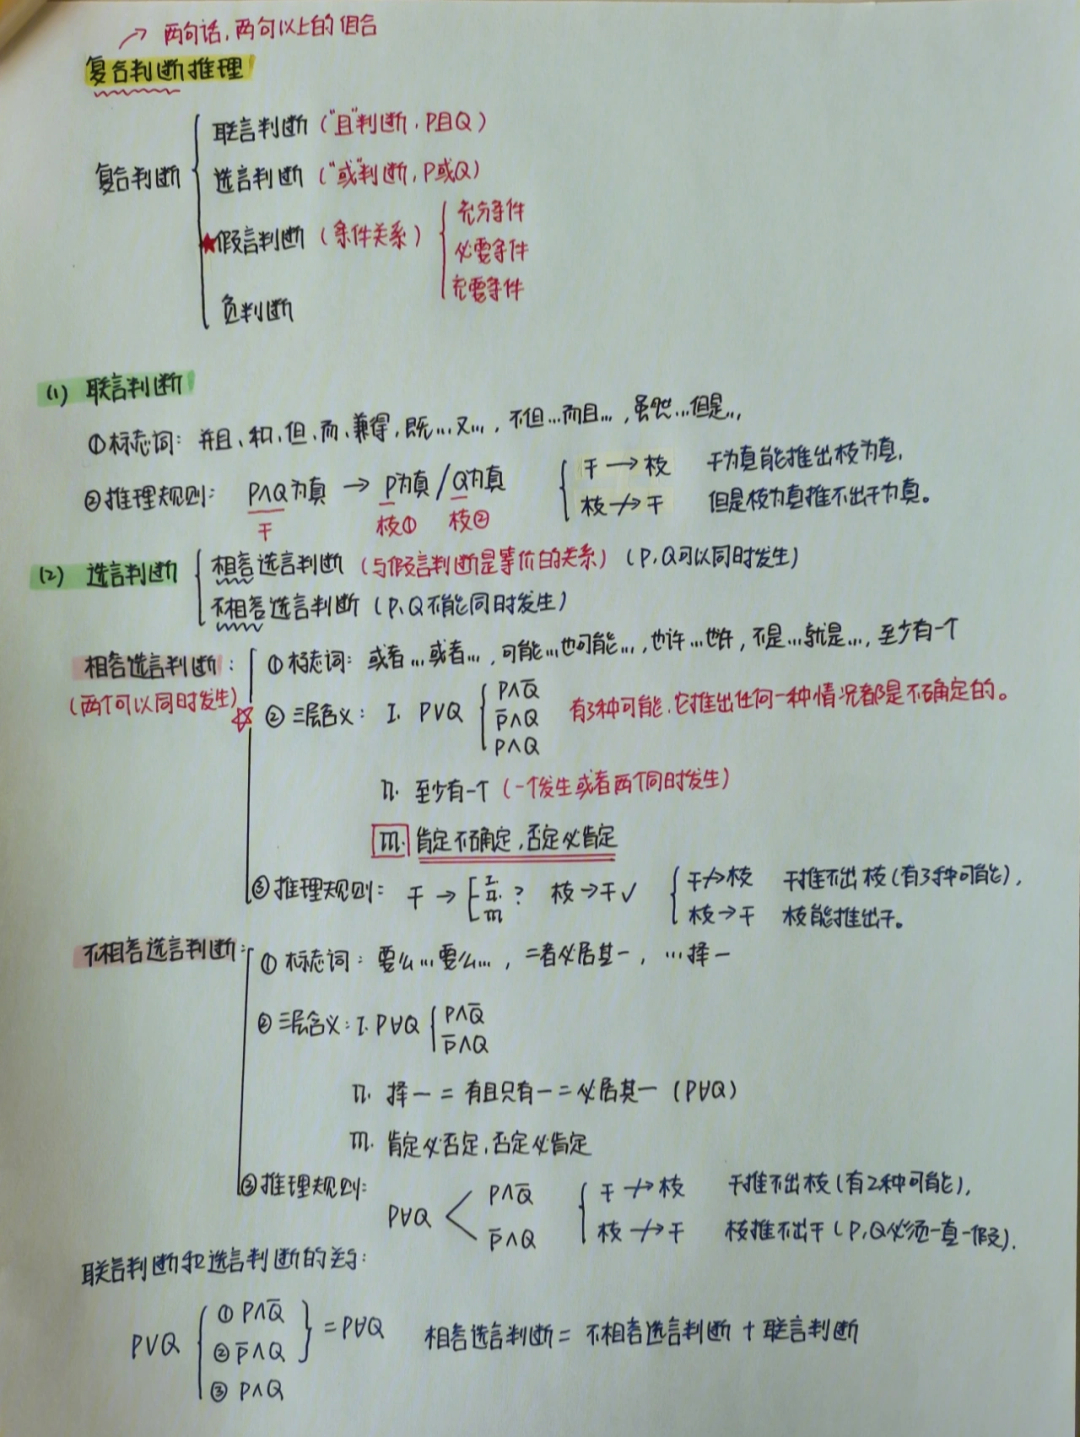 → 两句话,两句以上的组合
复合判断推理
复合判断
联言判断 ("且"判断,P且Q)
选言判断 ("或"判断,P或Q)
★假言判断 (条件关系)
充分条件
必要条件
充要条件
负判断
(1) 联言判断
①标志词: 并且、和、但、而、兼得、既…又…, 不但…而且…, 虽然…但是…
②推理规则: P∧Q为真 → P为真/Q为真
干 枝① 枝②
干→枝 干为真能推出枝为真,
枝↛干 但是枝为真推不出干为真。
(2) 选言判断
相容选言判断 (与假言判断是等价的关系) (P,Q可以同时发生)
不相容选言判断 (P、Q不能同时发生)
相容选言判断:
(两个可以同时发生)
①标志词: 或者…或者…, 可能…也可能…, 也许…也许, 不是…就是…, 至少有一个
☆②三层含义: I. P∨Q
P∧Q̅
P̅∧Q
P∧Q
有3种可能,它推出任何一种情况都是不确定的。
II. 至少有一个 (一个发生或者两个同时发生)
III. 肯定不确定,否定必肯定
③推理规则: 干→[I II III ? 枝→干✓
干↛枝 干推不出枝(有3种可能),
枝→干 枝能推出干。
不相容选言判断:
①标志词: 要么…要么…, 二者必居其一, …择一
②三层含义: I. P∀Q
P∧Q̅
P̅∧Q
II. 择一 = 有且只有一 = 必居其一 (P∀Q)
III. 肯定必否定,否定必肯定
③推理规则:
P∀Q < P∧Q̅
P̅∧Q
干↛枝 干推不出枝(有2种可能),
枝↛干 枝推不出干(P,Q必须一真一假).
联言判断和选言判断的关系:
P∨Q
① P∧Q̅
② P̅∧Q
} = P∀Q
③ P∧Q
相容选言判断 = 不相容选言判断 + 联言判断